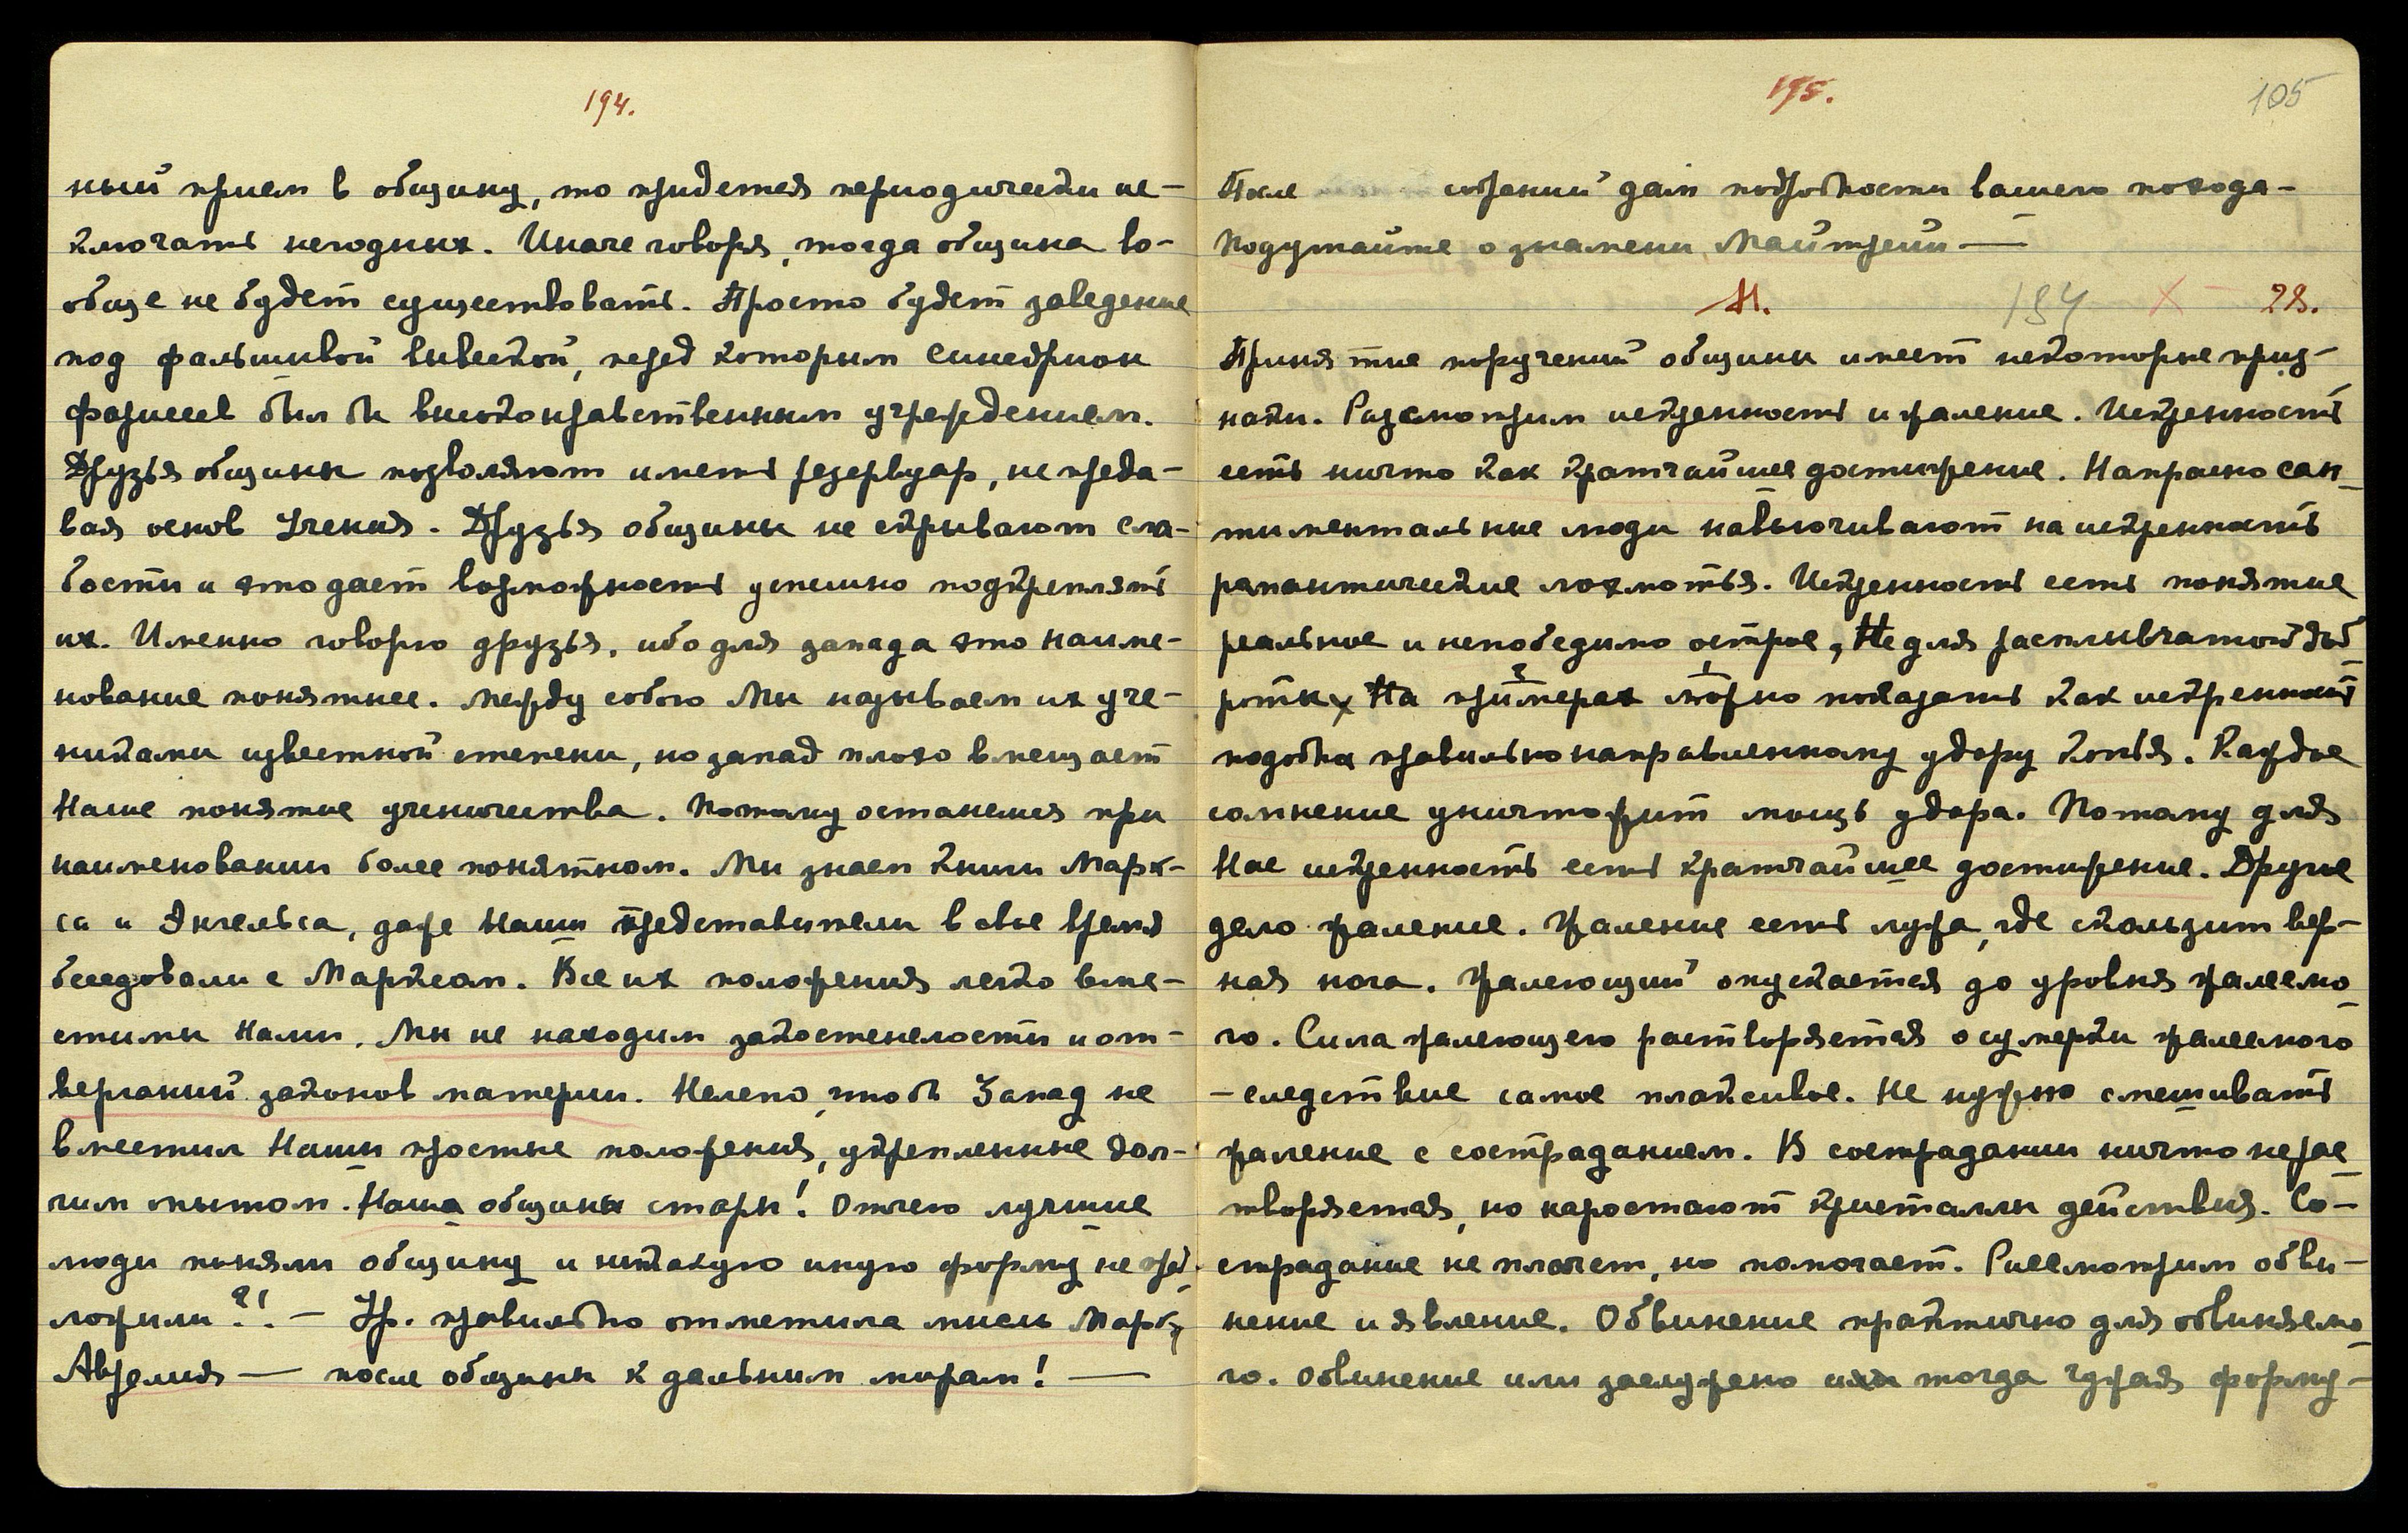 194.
ный прием в общину, то придется периодически ис-
ключать негодных. Иначе говоря, тогда община во-
обще не будет существовать. Просто будет заведение
под фальшивой вывеской, перед которым синедрион
фарисеев был бы высоконравственным учреждением.
Друзья общины позволяют иметь резервуар, не преда-
вая основ Учения. Друзья общины не скрывают сла-
бости и это дает возможность успешно подкреплять
их. Именно говорю друзья, ибо для запада это наиме-
нование понятнее. Между собою Мы называем их уче-
никами известной степени, но запад плохо вмещает
Наше понятие ученичества. Потому останемся при
наименовании более понятном. Мы знаем книги Марк-
са и Энгельса, даже Наши представители в свое время
беседовали с Марксом. Все их положения легко вме-
стимы Нами. Мы не находим закостенелости и от-
верганий законов материи. Нелепо, чтобы Запад не
вместил Наши простые положения, укрепленные дол-
гим опытом. Наши общины стары! Отчего лучшие
люди поняли общину и никакую иную форму не пред-
ложили?! — Ур. правильно отметила мысль Марка
Аврелия — после общины к дальним мирам! —
195.
105
После собраний дам подробности вашего похода —
Подумайте о знамени Майтрейи —
М. 194 × 28.
Принятие поручений общины имеет некоторые приз-
наки. Рассмотрим искренность и жаление. Искренность
есть ничто как кратчайшее достижение. Напрасно сан-
тиментальные люди навьючивают на искренность
романтические лохмотья. Искренность есть понятие
реальное и непобедимо острое, Не для расплывчатой доб
роты × На примерах можно показать как искренность
подобна правильно направленному удару копья. Каждое
сомнение уничтожит мощь удара. Потому для
Нас искренность есть кратчайшее достижение. Другое
дело жаление. Жаление есть лужа, где скользит вер-
ная нога. Жалеющий опускается до уровня жалеемо-
го. Сила жалеющего растворяется о сумерки жалеемого
— следствие самое плаксивое. Не нужно смешивать
жаление с состраданием. В сострадании ничто не рас-
творяется, но наростают кристаллы действия. Со-
страдание не плачет, но помогает. Рассмотрим обви-
нение и явление. Обвинение практично для обвиняемо-
го. Обвинение или заслужено или тогда чужая форму-